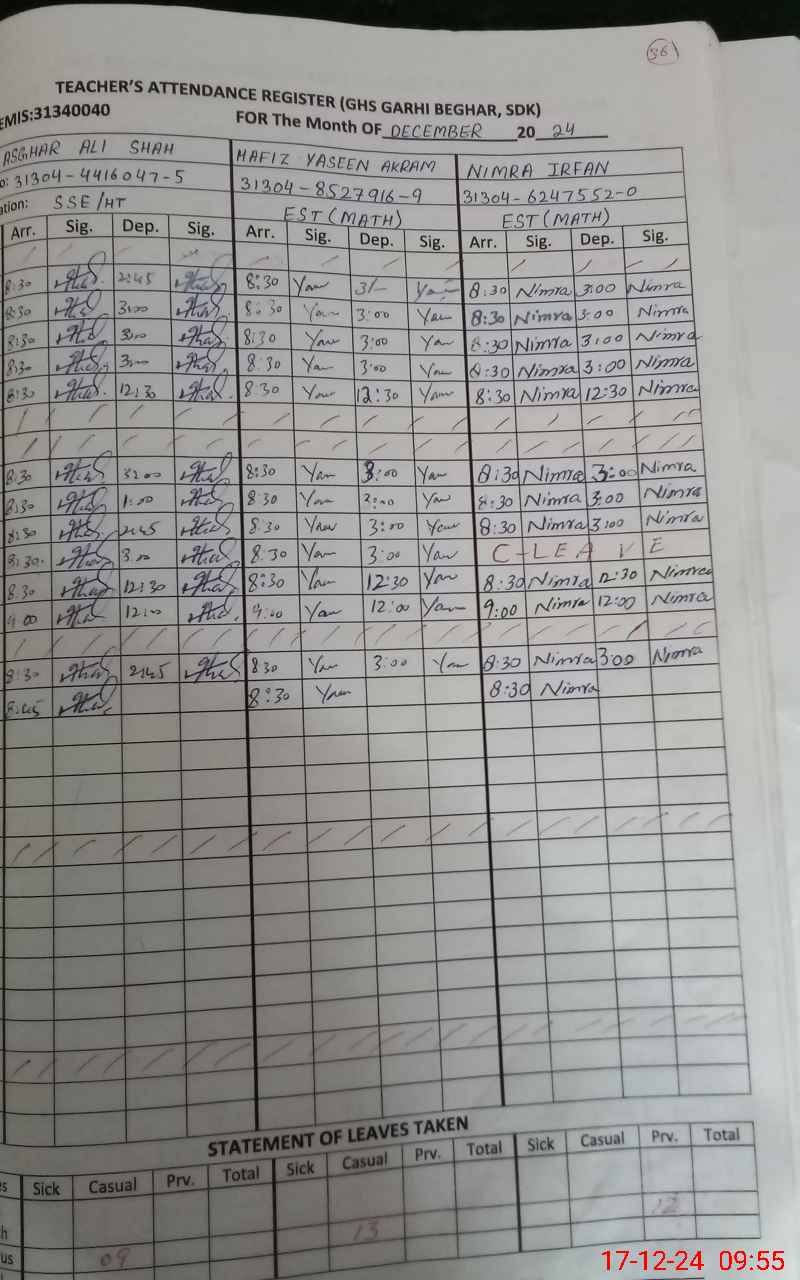 36
TEACHER'S ATTENDANCE REGISTER (GHS GARHI BEGHAR, SDK)
EMIS:31340040 FOR The Month OF DECEMBER 20 24
ASGHAR ALI SHAH HAFIZ YASEEN AKRAM NIMRA IRFAN
o: 31304-4416047-5 31304-8527916-9 31304-6247552-0
ation: SSE/HT EST (MATH) EST (MATH)
Arr. Sig. Dep. Sig. Arr. Sig. Dep. Sig. Arr. Sig. Dep. Sig.
8:30 2:45 8:30 Yas 3/- Yas 8:30 Nimra 3:00 Nimra
8:30 3:00 8:30 Yas 3:00 Yas 8:30 Nimra 3:00 Nimra
8:30 3:00 8:30 Yas 3:00 Yas 8:30 Nimra 3:00 Nimra
8:30 3:00 8:30 Yas 3:00 Yas 8:30 Nimra 3:00 Nimra
8:30 12:30 8:30 Yas 12:30 Yas 8:30 Nimra 12:30 Nimra
8:30 3:00 8:30 Yas 3:00 Yas 8:30 Nimra 3:00 Nimra
8:30 1:00 8:30 Yas 3:00 Yas 8:30 Nimra 3:00 Nimra
8:30 2:45 8:30 Yas 3:00 Yas 8:30 Nimra 3:00 Nimra
8:30 3:00 8:30 Yas 3:00 Yas C-LEAVE
8:30 12:30 8:30 Yas 12:30 Yas 8:30 Nimra 12:30 Nimra
9:00 12:00 9:00 Yas 12:00 Yas 9:00 Nimra 12:00 Nimra
8:30 2:45 8:30 Yas 3:00 Yas 8:30 Nimra 3:00 Nimra
8:45 8:30 Yas 8:30 Nimra
STATEMENT OF LEAVES TAKEN
s Sick Casual Prv. Total Sick Casual Prv. Total Sick Casual Prv. Total
h 13 12
us 09
17-12-24 09:55